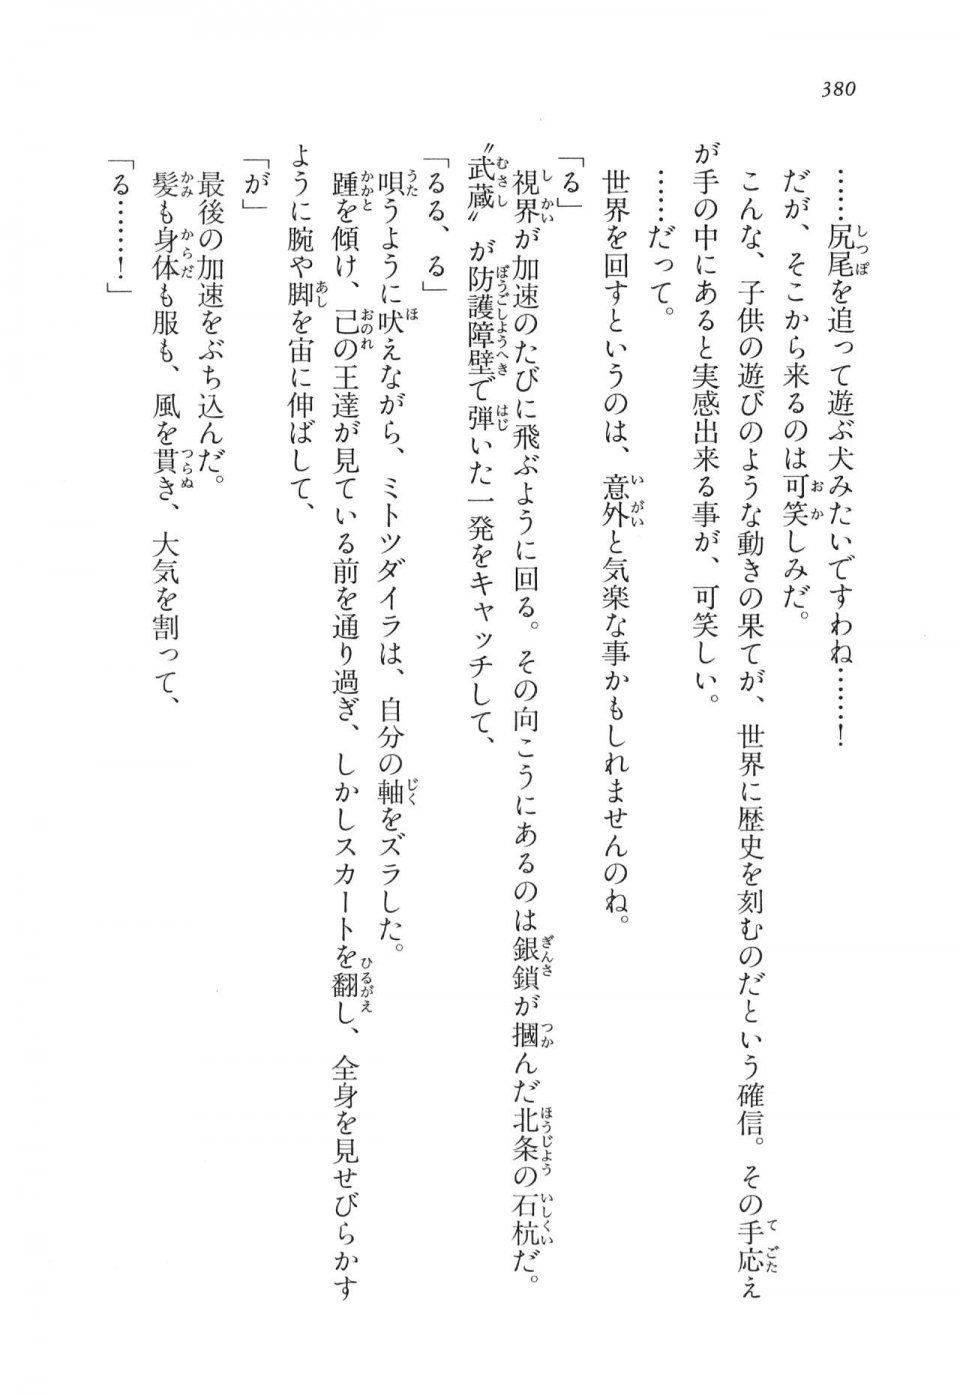 380
……尻尾を追って遊ぶ犬みたいですわね……！
だが、そこから来るのは可笑しみだ。
こんな、子供の遊びのような動きの果てが、世界に歴史を刻むのだという確信。その手応え
が手の中にあると実感出来る事が、可笑しい。
……だって。
世界を回すというのは、意外と気楽な事かもしれませんのね。
「る」
視界が加速のたびに飛ぶように回る。その向こうにあるのは銀鎖が摑んだ北条の石杭だ。
〝武蔵〟が防護障壁で弾いた一発をキャッチして、
「るる、る」
唄うように吠えながら、ミトツダイラは、自分の軸をズラした。
踵を傾け、己の王達が見ている前を通り過ぎ、しかしスカートを翻し、全身を見せびらかす
ように腕や脚を宙に伸ばして、
「が」
最後の加速をぶち込んだ。
髪も身体も服も、風を貫き、大気を割って、
「る……！」